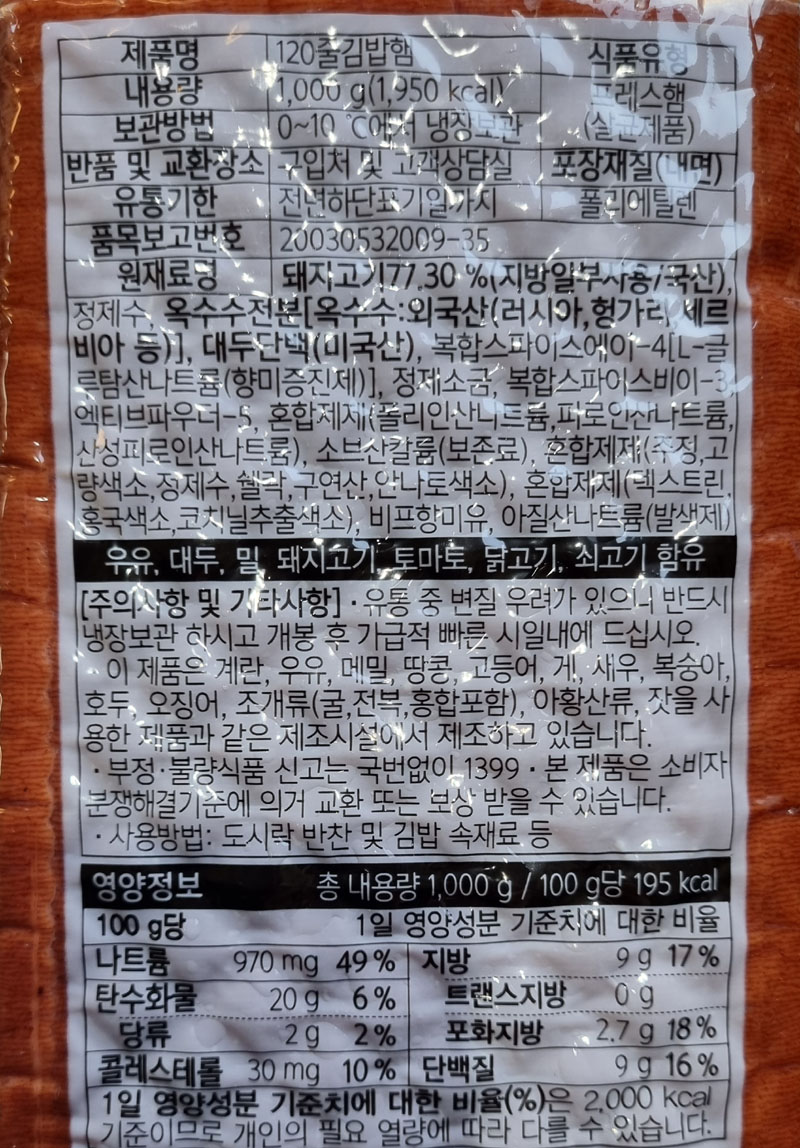 제품명 120줄김밥햄 식품유형
내용량 1,000 g(1,950 kcal) 프레스햄
보관방법 0~10 ℃에서 냉장보관 (살균제품)
반품 및 교환장소 구입처 및 고객상담실 포장재질(내면)
유통기한 전면하단표기일까지 폴리에틸렌
품목보고번호 20030532009-35
원재료명 돼지고기77.30 %(지방일부사용/국산),
정제수, 옥수수전분[옥수수:외국산(러시아,헝가리, 세르
비아 등)], 대두단백(미국산), 복합스파이스에이-4[L-글
루탐산나트륨(향미증진제)], 정제소금, 복합스파이스비이-3,
엑티브파우더-5, 혼합제제(폴리인산나트륨,피로인산나트륨,
산성피로인산나트륨), 소브산칼륨(보존료), 혼합제제(주정,고
량색소,정제수,쉘락,구연산,안나토색소), 혼합제제(덱스트린,
홍국색소,코치닐추출색소), 비프향미유, 아질산나트륨(발색제)
우유, 대두, 밀, 돼지고기, 토마토, 닭고기, 쇠고기 함유
[주의사항 및 기타사항] · 유통 중 변질 우려가 있으니 반드시
냉장보관 하시고 개봉 후 가급적 빠른 시일내에 드십시오.
· 이 제품은 계란, 우유, 메밀, 땅콩, 고등어, 게, 새우, 복숭아,
호두, 오징어, 조개류(굴,전복,홍합포함), 아황산류, 잣을 사
용한 제품과 같은 제조시설에서 제조하고 있습니다.
· 부정·불량식품 신고는 국번없이 1399 · 본 제품은 소비자
분쟁해결기준에 의거 교환 또는 보상 받을 수 있습니다.
· 사용방법: 도시락 반찬 및 김밥 속재료 등
영양정보 총 내용량 1,000 g / 100 g당 195 kcal
100 g당 1일 영양성분 기준치에 대한 비율
나트륨 970 mg 49 % 지방 9 g 17 %
탄수화물 20 g 6 % 트랜스지방 0 g
당류 2 g 2 % 포화지방 2.7 g 18 %
콜레스테롤 30 mg 10 % 단백질 9 g 16 %
1일 영양성분 기준치에 대한 비율(%)은 2,000 kcal
기준이므로 개인의 필요 열량에 따라 다를 수 있습니다.